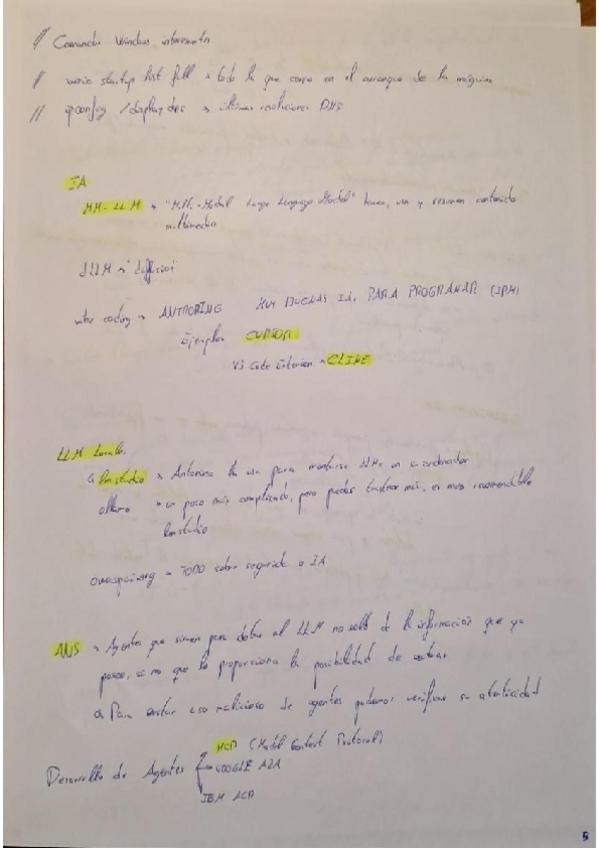 // Comandos Windows interesantes
// wmic startup list full → todo lo que corre en el arranque de la máquina
// ipconfig /displaydns → últimas resoluciones DNS
IA
MM-LLM → "Multi-Modal Large Language Model" leer, ver y resumen contenido
multimedia
dLLM → diffusion
vibe coding → MUY BUENAS IAs PARA PROGRAMAR
Ejemplos CURSOR
VS Code Extension → CLINE
LLM Locales
lmstudio → Antonino la usa para montarse LLMs en su ordenador
ollama → un poco más complicado, pero puedes trastear más, es más recomendable
lmstudio
→ TODO sobre seguridad e IA
ANS → Agentes que sirven para dotar al LLM no solo de la información que ya
posee, si no que le proporciona la posibilidad de
Para evitar uso malicioso de agentes podemos verificar su autenticidad
Desarrollo de Agentes
MCP (Model Context Protocol)
GOOGLE A2A
IBM ACP
5